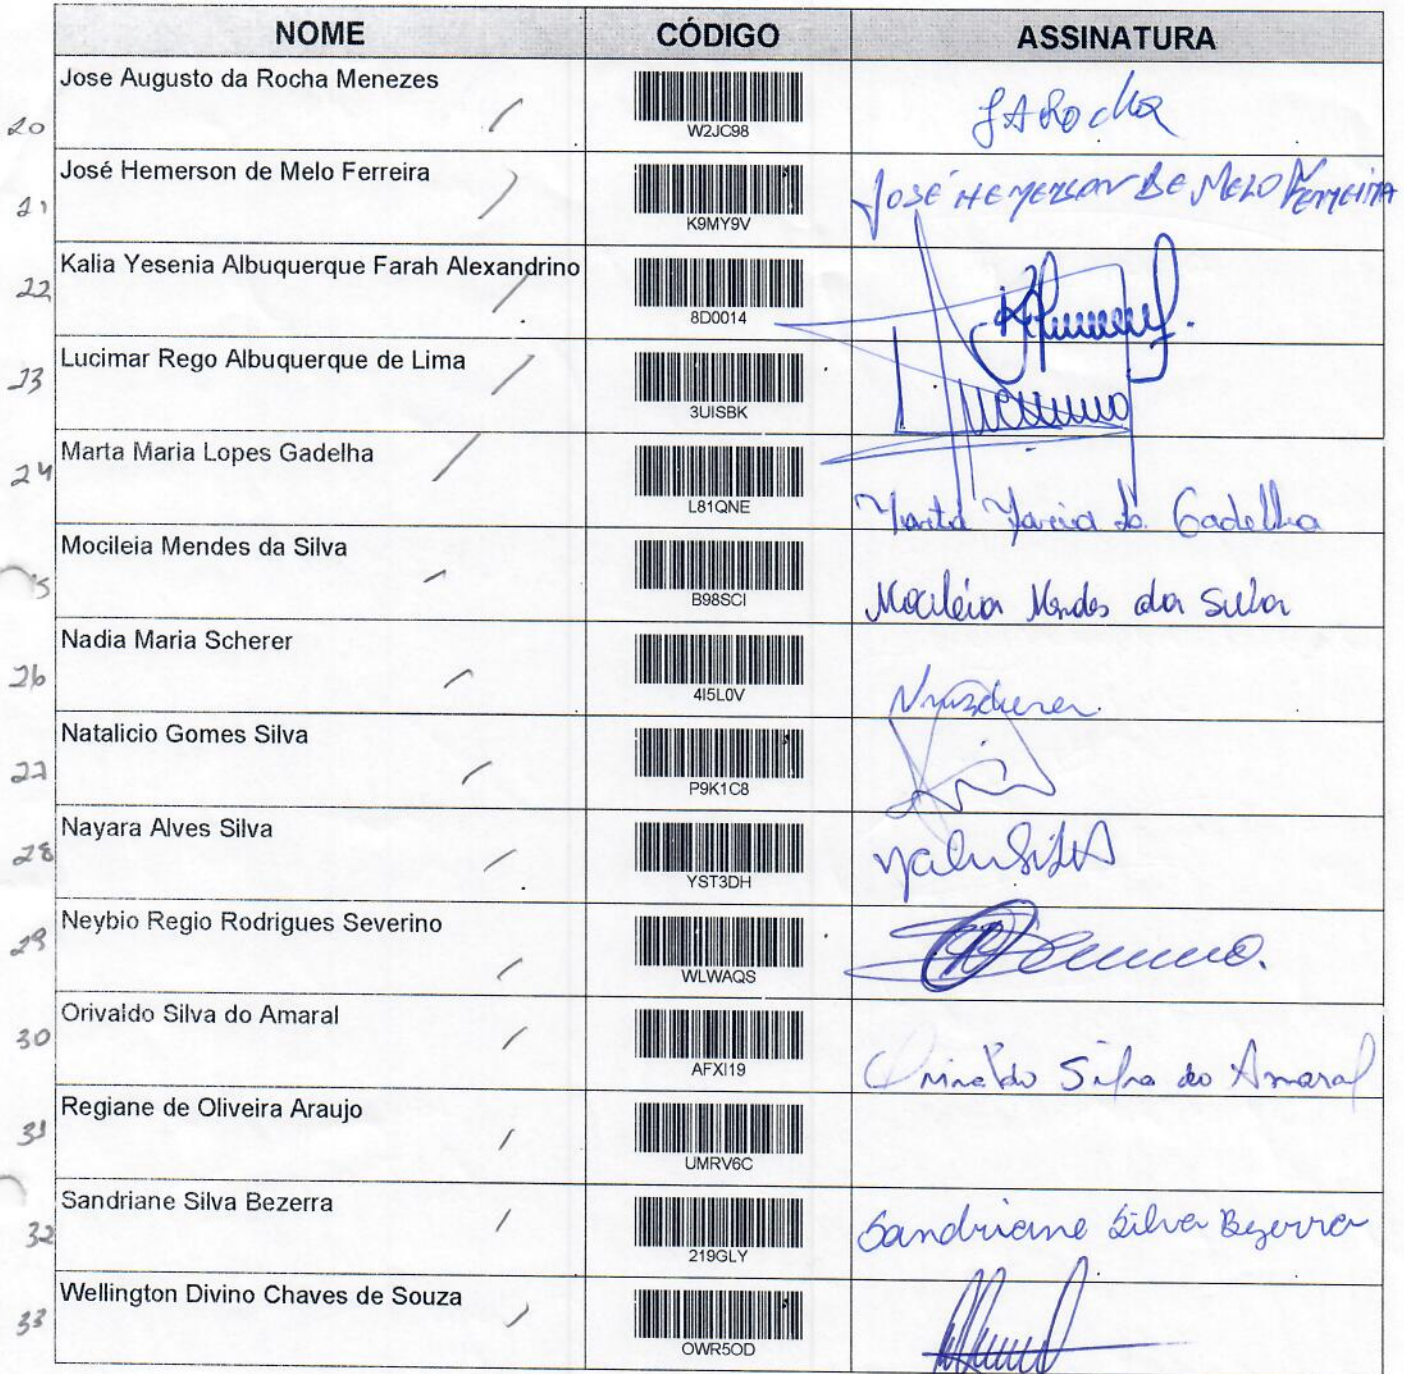 NOME CÓDIGO ASSINATURA
20 Jose Augusto da Rocha Menezes W2JC98 JARocha
21 José Hemerson de Melo Ferreira K9MY9V JOSÉ HEMERSON DE MELO FERREIRA
22 Kalia Yesenia Albuquerque Farah Alexandrino 8D0014
23 Lucimar Rego Albuquerque de Lima 3UISBK
24 Marta Maria Lopes Gadelha L81QNE Marta Maria L. Gadelha
Mocileia Mendes da Silva B98SCI Mocileia Mendes da Silva
26 Nadia Maria Scherer 4I5L0V
27 Natalicio Gomes Silva P9K1C8
28 Nayara Alves Silva YST3DH
29 Neybio Regio Rodrigues Severino WLWAQS
30 Orivaldo Silva do Amaral AFXI19 Orivaldo Silva do Amaral
31 Regiane de Oliveira Araujo UMRV6C
32 Sandriane Silva Bezerra 219GLY Sandriane Silva Bezerra
33 Wellington Divino Chaves de Souza OWR5OD